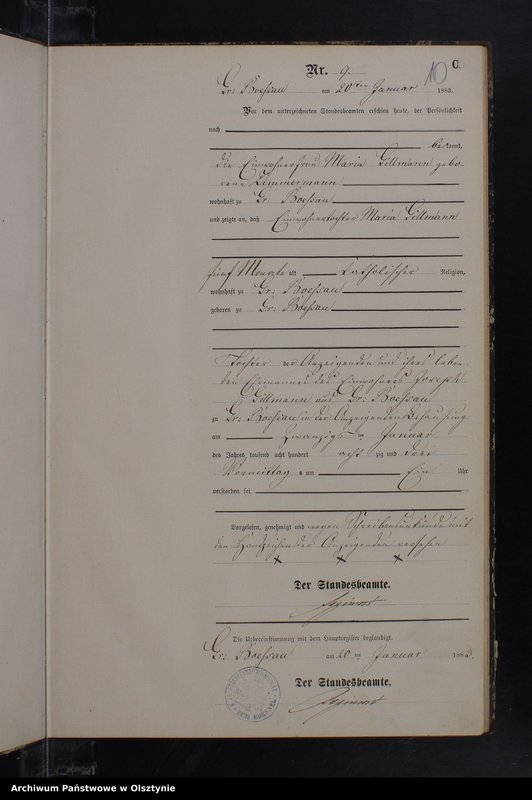 C.
10
Nr. 9.
Gr: Boessau am 20ten Januar 1883.
Vor dem unterzeichneten Standesbeamten erschien heute, der Persönlichkeit
nach
bekannt,
die Einwohnerfrau Maria Gillmann gebo-
rene Zimmermann
wohnhaft zu Gr: Boessau
und zeigte an, daß Einwohnertochter Maria Gillmann
fünf Monate alt katholischer Religion,
wohnhaft zu Gr: Boessau
geboren zu Gr: Boessau
Tochter der Anzeigenden und ihres leben-
den Ehemannes des Einwohners Joseph
Gillmann aus Gr: Boessau
zu Gr: Boessau in der Anzeigenden Behausung
am zwanzigsten Januar
des Jahres tausend acht hundert achtzig und drei
Vormittags um Ein Uhr
verstorben sei.
Vorgelesen, genehmigt und wegen Schreibensunkunde mit
den Handzeichen der Anzeigenden versehen
x x x
Der Standesbeamte.
Die Uebereinstimmung mit dem Hauptregister beglaubigt.
Gr: Boessau am 20ten Januar 1883.
Der Standesbeamte.
Archiwum Państwowe w Olsztynie